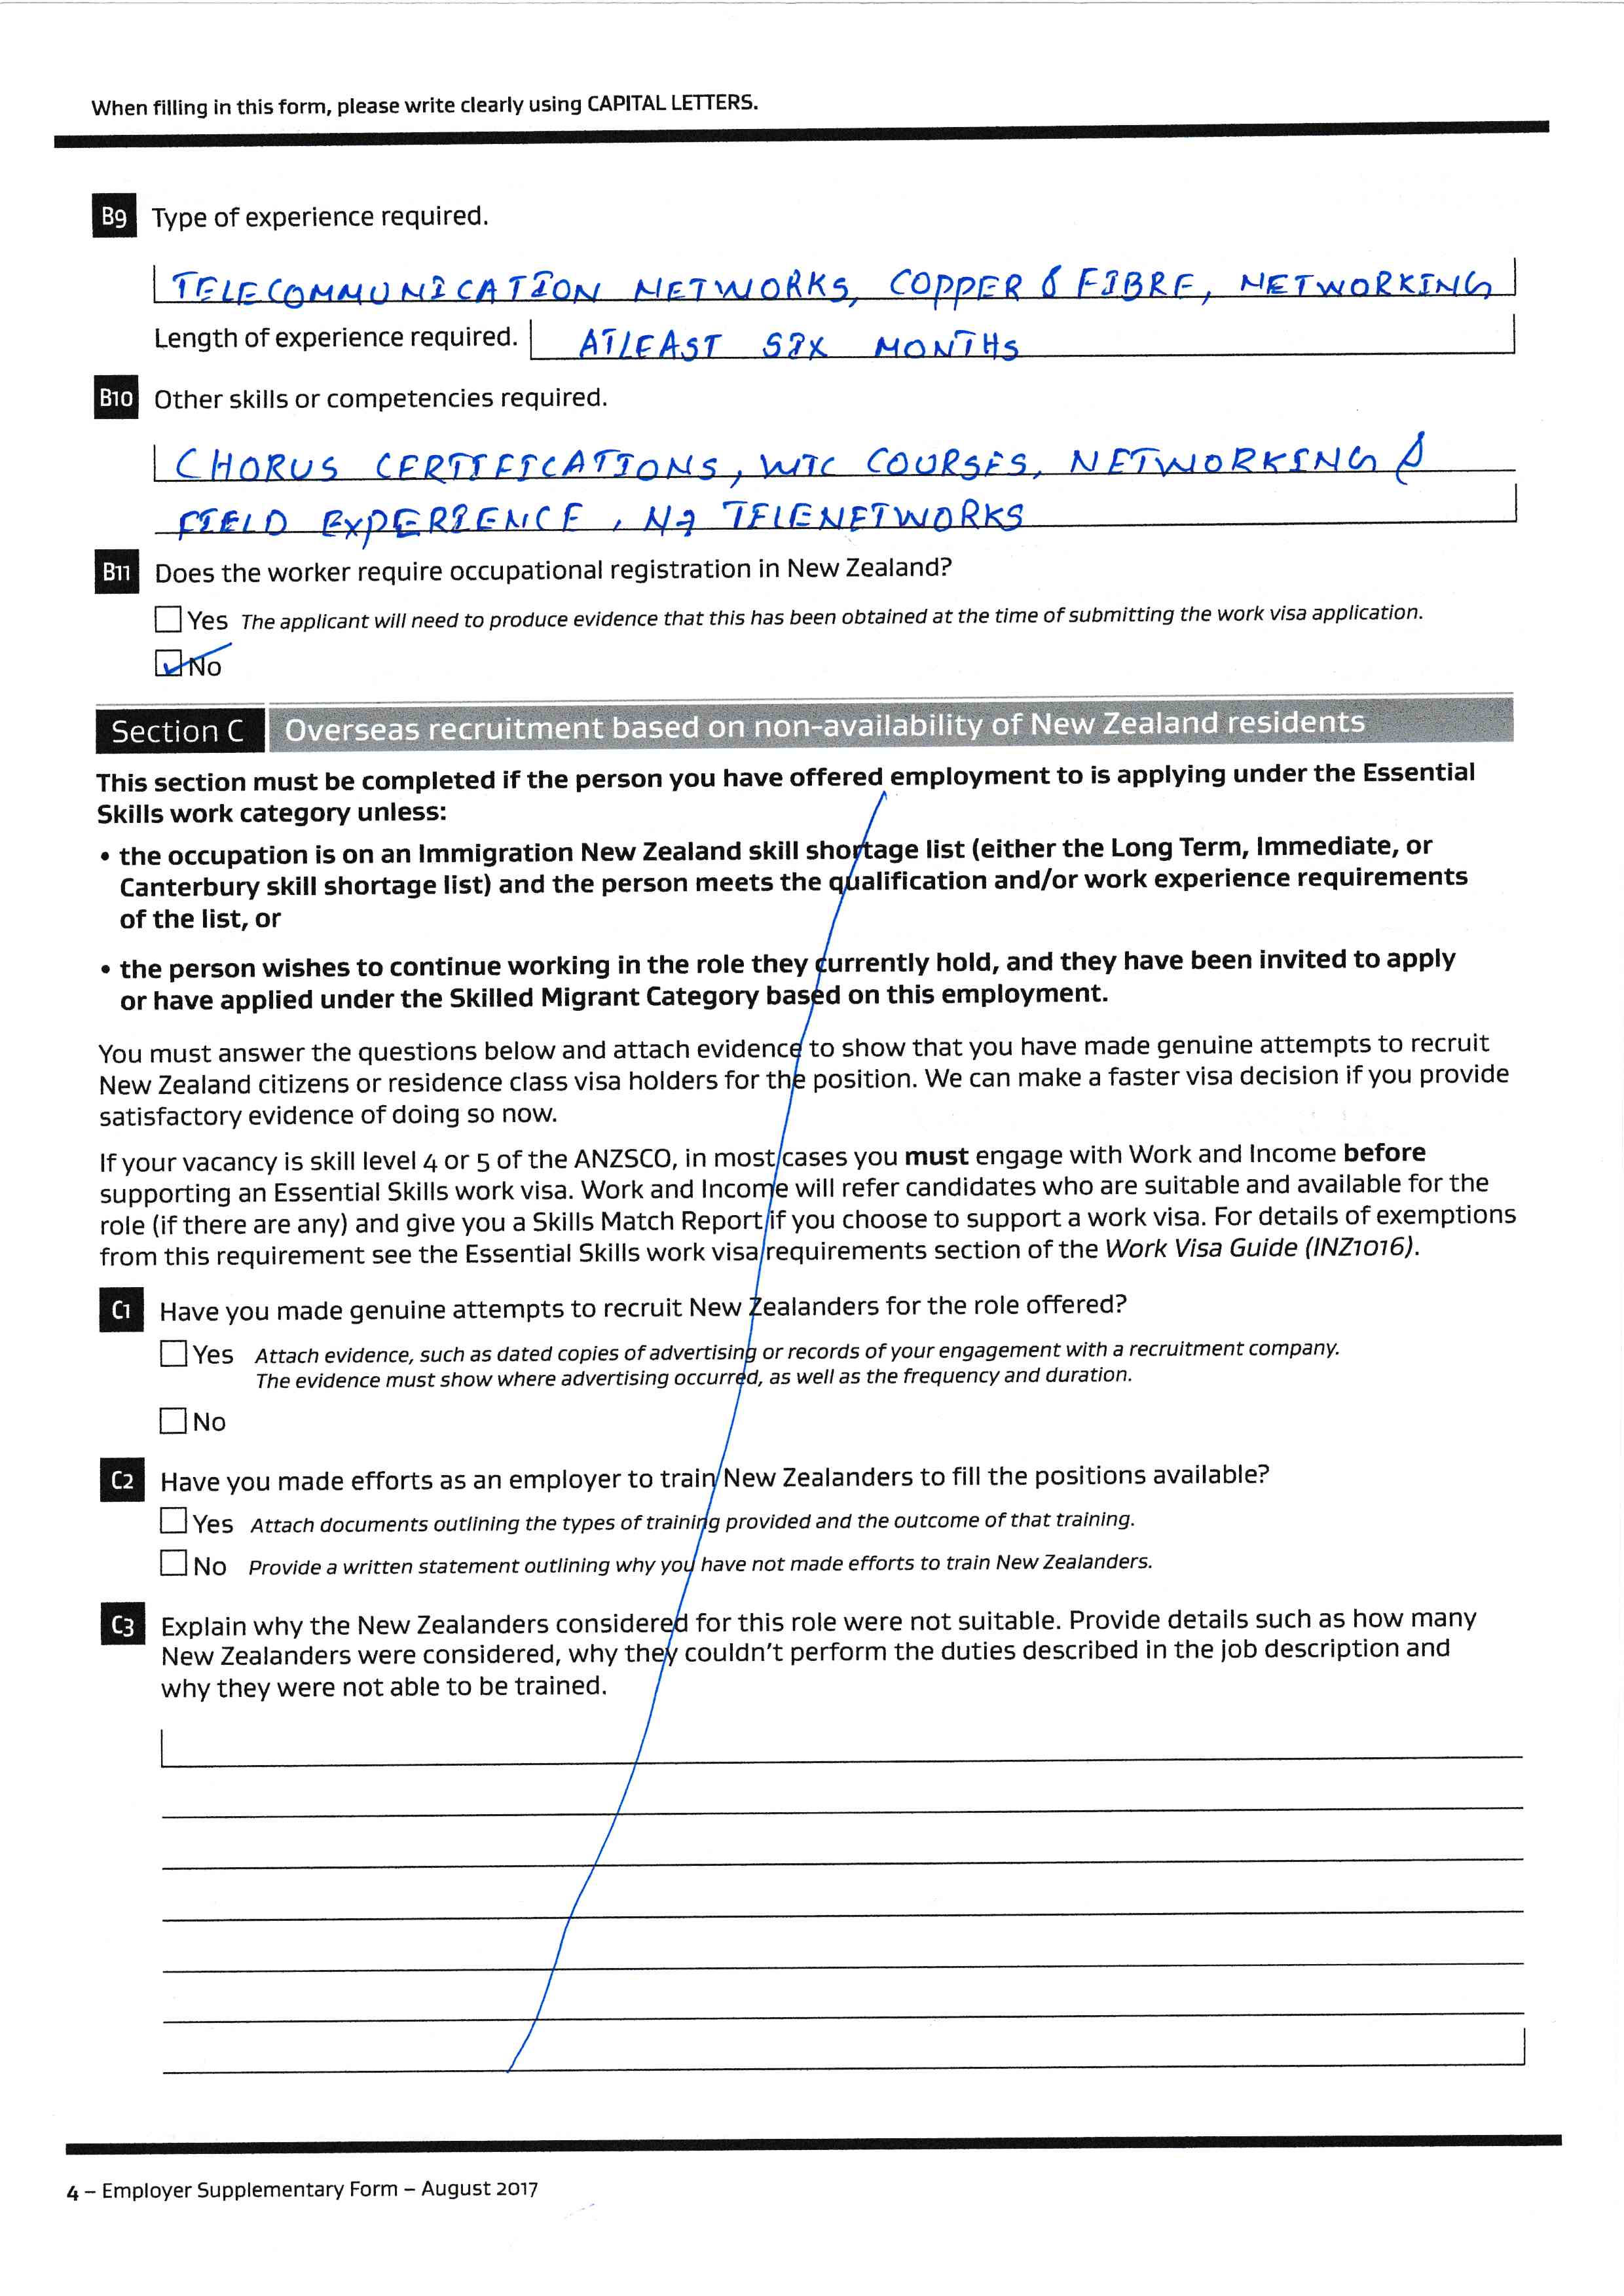 When filling in this form, please write clearly using CAPITAL LETTERS.
B9 Type of experience required.
TELECOMMUNICATION NETWORKS, COPPER & FIBRE, NETWORKING
Length of experience required. ATLEAST SIX MONTHS
B10 Other skills or competencies required.
CHORUS CERTIFICATIONS, WTC COURSES, NETWORKING &
FIELD EXPERIENCE, NZ TELENETWORKS
B11 Does the worker require occupational registration in New Zealand?
Yes The applicant will need to produce evidence that this has been obtained at the time of submitting the work visa application.
No
Section C Overseas recruitment based on non-availability of New Zealand residents
This section must be completed if the person you have offered employment to is applying under the Essential
Skills work category unless:
• the occupation is on an Immigration New Zealand skill shortage list (either the Long Term, Immediate, or
Canterbury skill shortage list) and the person meets the qualification and/or work experience requirements
of the list, or
• the person wishes to continue working in the role they currently hold, and they have been invited to apply
or have applied under the Skilled Migrant Category based on this employment.
You must answer the questions below and attach evidence to show that you have made genuine attempts to recruit
New Zealand citizens or residence class visa holders for the position. We can make a faster visa decision if you provide
satisfactory evidence of doing so now.
If your vacancy is skill level 4 or 5 of the ANZSCO, in most cases you must engage with Work and Income before
supporting an Essential Skills work visa. Work and Income will refer candidates who are suitable and available for the
role (if there are any) and give you a Skills Match Report if you choose to support a work visa. For details of exemptions
from this requirement see the Essential Skills work visa requirements section of the Work Visa Guide (INZ1016).
C1 Have you made genuine attempts to recruit New Zealanders for the role offered?
Yes Attach evidence, such as dated copies of advertising or records of your engagement with a recruitment company.
The evidence must show where advertising occurred, as well as the frequency and duration.
No
C2 Have you made efforts as an employer to train New Zealanders to fill the positions available?
Yes Attach documents outlining the types of training provided and the outcome of that training.
No Provide a written statement outlining why you have not made efforts to train New Zealanders.
C3 Explain why the New Zealanders considered for this role were not suitable. Provide details such as how many
New Zealanders were considered, why they couldn't perform the duties described in the job description and
why they were not able to be trained.
4 – Employer Supplementary Form – August 2017